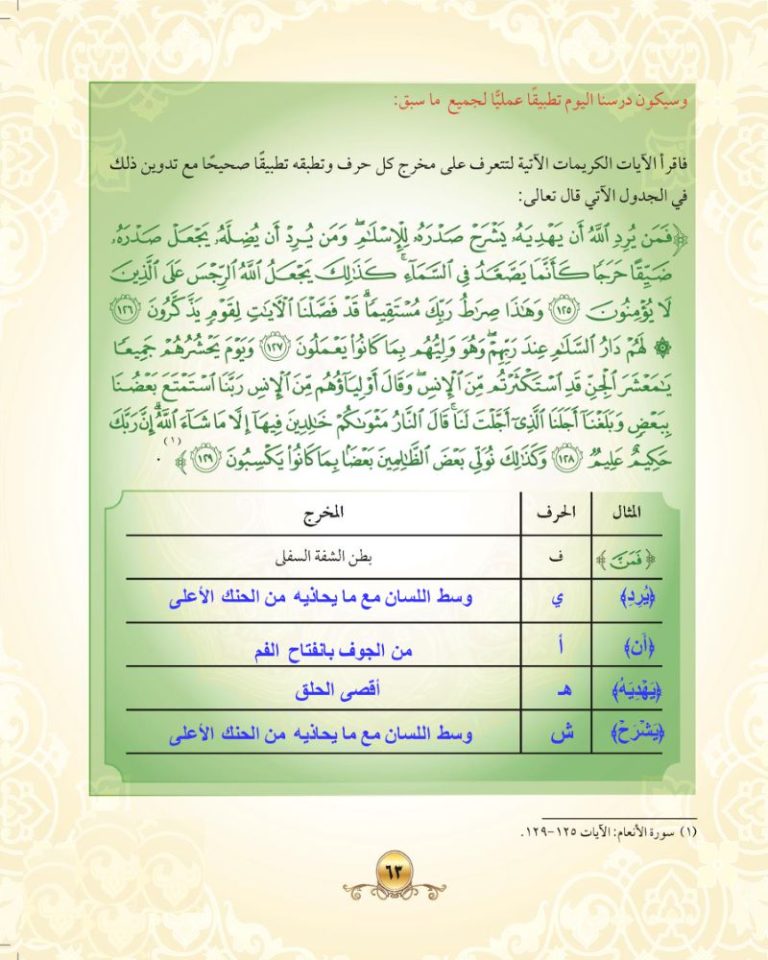 وسيكون درسنا اليوم تطبيقًا عمليًّا لجميع ما سبق:
فاقرأ الآيات الكريمات الآتية لتتعرف على مخرج كل حرف وتطبقه تطبيقًا صحيحًا مع تدوين ذلك
في الجدول الآتي قال تعالى:
﴿فَمَن يُرِدِ ٱللَّهُ أَن يَهْدِيَهُۥ يَشْرَحْ صَدْرَهُۥ لِلْإِسْلَٰمِ ۖ وَمَن يُرِدْ أَن يُضِلَّهُۥ يَجْعَلْ صَدْرَهُۥ
ضَيِّقًا حَرَجًا كَأَنَّمَا يَصَّعَّدُ فِى ٱلسَّمَآءِ ۚ كَذَٰلِكَ يَجْعَلُ ٱللَّهُ ٱلرِّجْسَ عَلَى ٱلَّذِينَ
لَا يُؤْمِنُونَ ١٢٥ وَهَٰذَا صِرَٰطُ رَبِّكَ مُسْتَقِيمًا ۗ قَدْ فَصَّلْنَا ٱلْءَايَٰتِ لِقَوْمٍ يَذَّكَّرُونَ ١٢٦
۞ لَهُمْ دَارُ ٱلسَّلَٰمِ عِندَ رَبِّهِمْ ۖ وَهُوَ وَلِيُّهُم بِمَا كَانُوا۟ يَعْمَلُونَ ١٢٧ وَيَوْمَ يَحْشُرُهُمْ جَمِيعًا
يَٰمَعْشَرَ ٱلْجِنِّ قَدِ ٱسْتَكْثَرْتُم مِّنَ ٱلْإِنسِ ۖ وَقَالَ أَوْلِيَآؤُهُم مِّنَ ٱلْإِنسِ رَبَّنَا ٱسْتَمْتَعَ بَعْضُنَا
بِبَعْضٍ وَبَلَغْنَآ أَجَلَنَا ٱلَّذِىٓ أَجَّلْتَ لَنَا ۚ قَالَ ٱلنَّارُ مَثْوَىٰكُمْ خَٰلِدِينَ فِيهَآ إِلَّا مَا شَآءَ ٱللَّهُ ۗ إِنَّ رَبَّكَ
حَكِيمٌ عَلِيمٌ ١٢٨ وَكَذَٰلِكَ نُوَلِّى بَعْضَ ٱلظَّٰلِمِينَ بَعْضًۢا بِمَا كَانُوا۟ يَكْسِبُونَ ١٢٩﴾ (١).
المثال الحرف المخرج
﴿فَمَن﴾ ف بطن الشفة السفلى
﴿يُرِدِ﴾ ي وسط اللسان مع ما يحاذيه من الحنك الأعلى
﴿أَن﴾ أ من الجوف بانفتاح الفم
﴿يَهْدِيَهُ﴾ هـ أقصى الحلق
﴿يَشْرَحْ﴾ ش وسط اللسان مع ما يحاذيه من الحنك الأعلى
(١) سورة الأنعام: الآيات ١٢٥-١٢٩.
٦٣